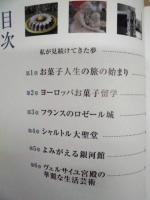 目次
私が見続けてきた夢
第1章 お菓子人生の旅の始まり
第2章 ヨーロッパお菓子留学
第3章 フランスのロゼール城
第4章 シャルトル大聖堂
第5章 よみがえる銀河館
第6章 ヴェルサイユ宮殿の
華麗な生活芸術